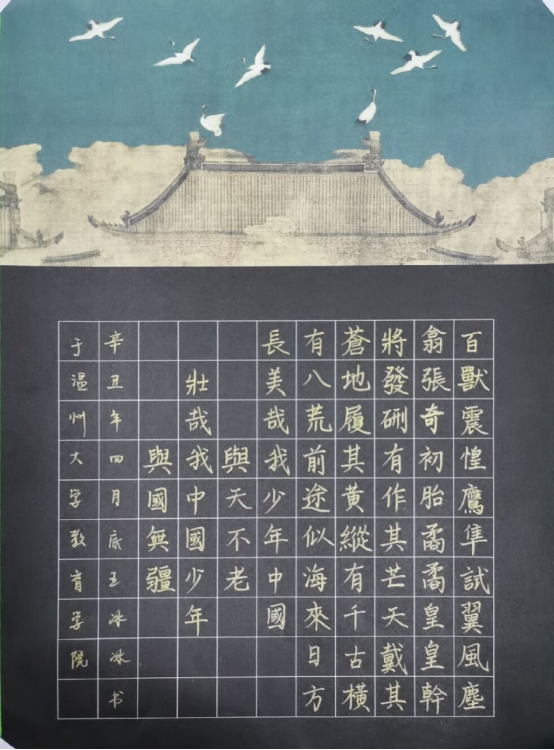 百獸震惶鷹隼試翼風塵
翕張奇初胎矞矞皇皇幹
將發硎有作其芒天戴其
蒼地履其黃縱有千古橫
有八荒前途似海來日方
長美哉我少年中國
與天不老
壯哉我中國少年
與國無疆
辛丑年四月底王冰冰书
于温州大学教育学院